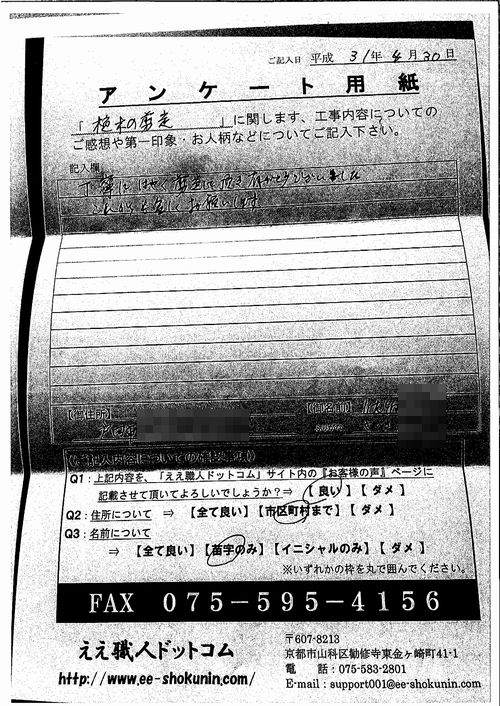 ご記入日 平成 31年 4月 30日
アンケート用紙
「 植木の剪定 」に関します、工事内容についての
ご感想や第一印象・お人柄などについてご記入下さい。
記入欄
丁寧にはやく剪定して
これからも宜しくお願いします
【御住所】
【御名前】
Q1：上記内容を、「ええ職人ドットコム」サイト内の『お客様の声』ページに
記載させて頂いてよろしいでしょうか？⇒ 【 良い 】 【 ダメ 】
Q2：住所について ⇒ 【全て良い】【市区町村まで】【 ダメ 】
Q3：名前について
⇒ 【全て良い】【苗字のみ】【イニシャルのみ】【 ダメ 】
※いずれかの枠を丸で囲んでください。
FAX 075-595-4156
ええ職人ドットコム
http://www.ee-shokunin.com/
〒607-8213
京都市山科区勧修寺東金ヶ崎町41-1
電 話：075-583-2801
E-mail：support001@ee-shokunin.com